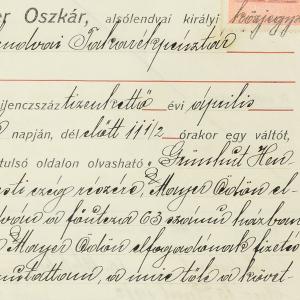 er Oszkár, alsólendvai királyi közjegyz
lendvai Takarékpénztár
ilenczszáz tizenkettő évi április
napján, dél előtt 11 1/2 órakor egy váltót,
tulsó oldalon olvasható Grünhut Hen
részére, Mayer Ödön el
a főutcza 63 számu házban
Mayer Ödön elfogadónak fizeté
mutattam, a mire tőle a követ-